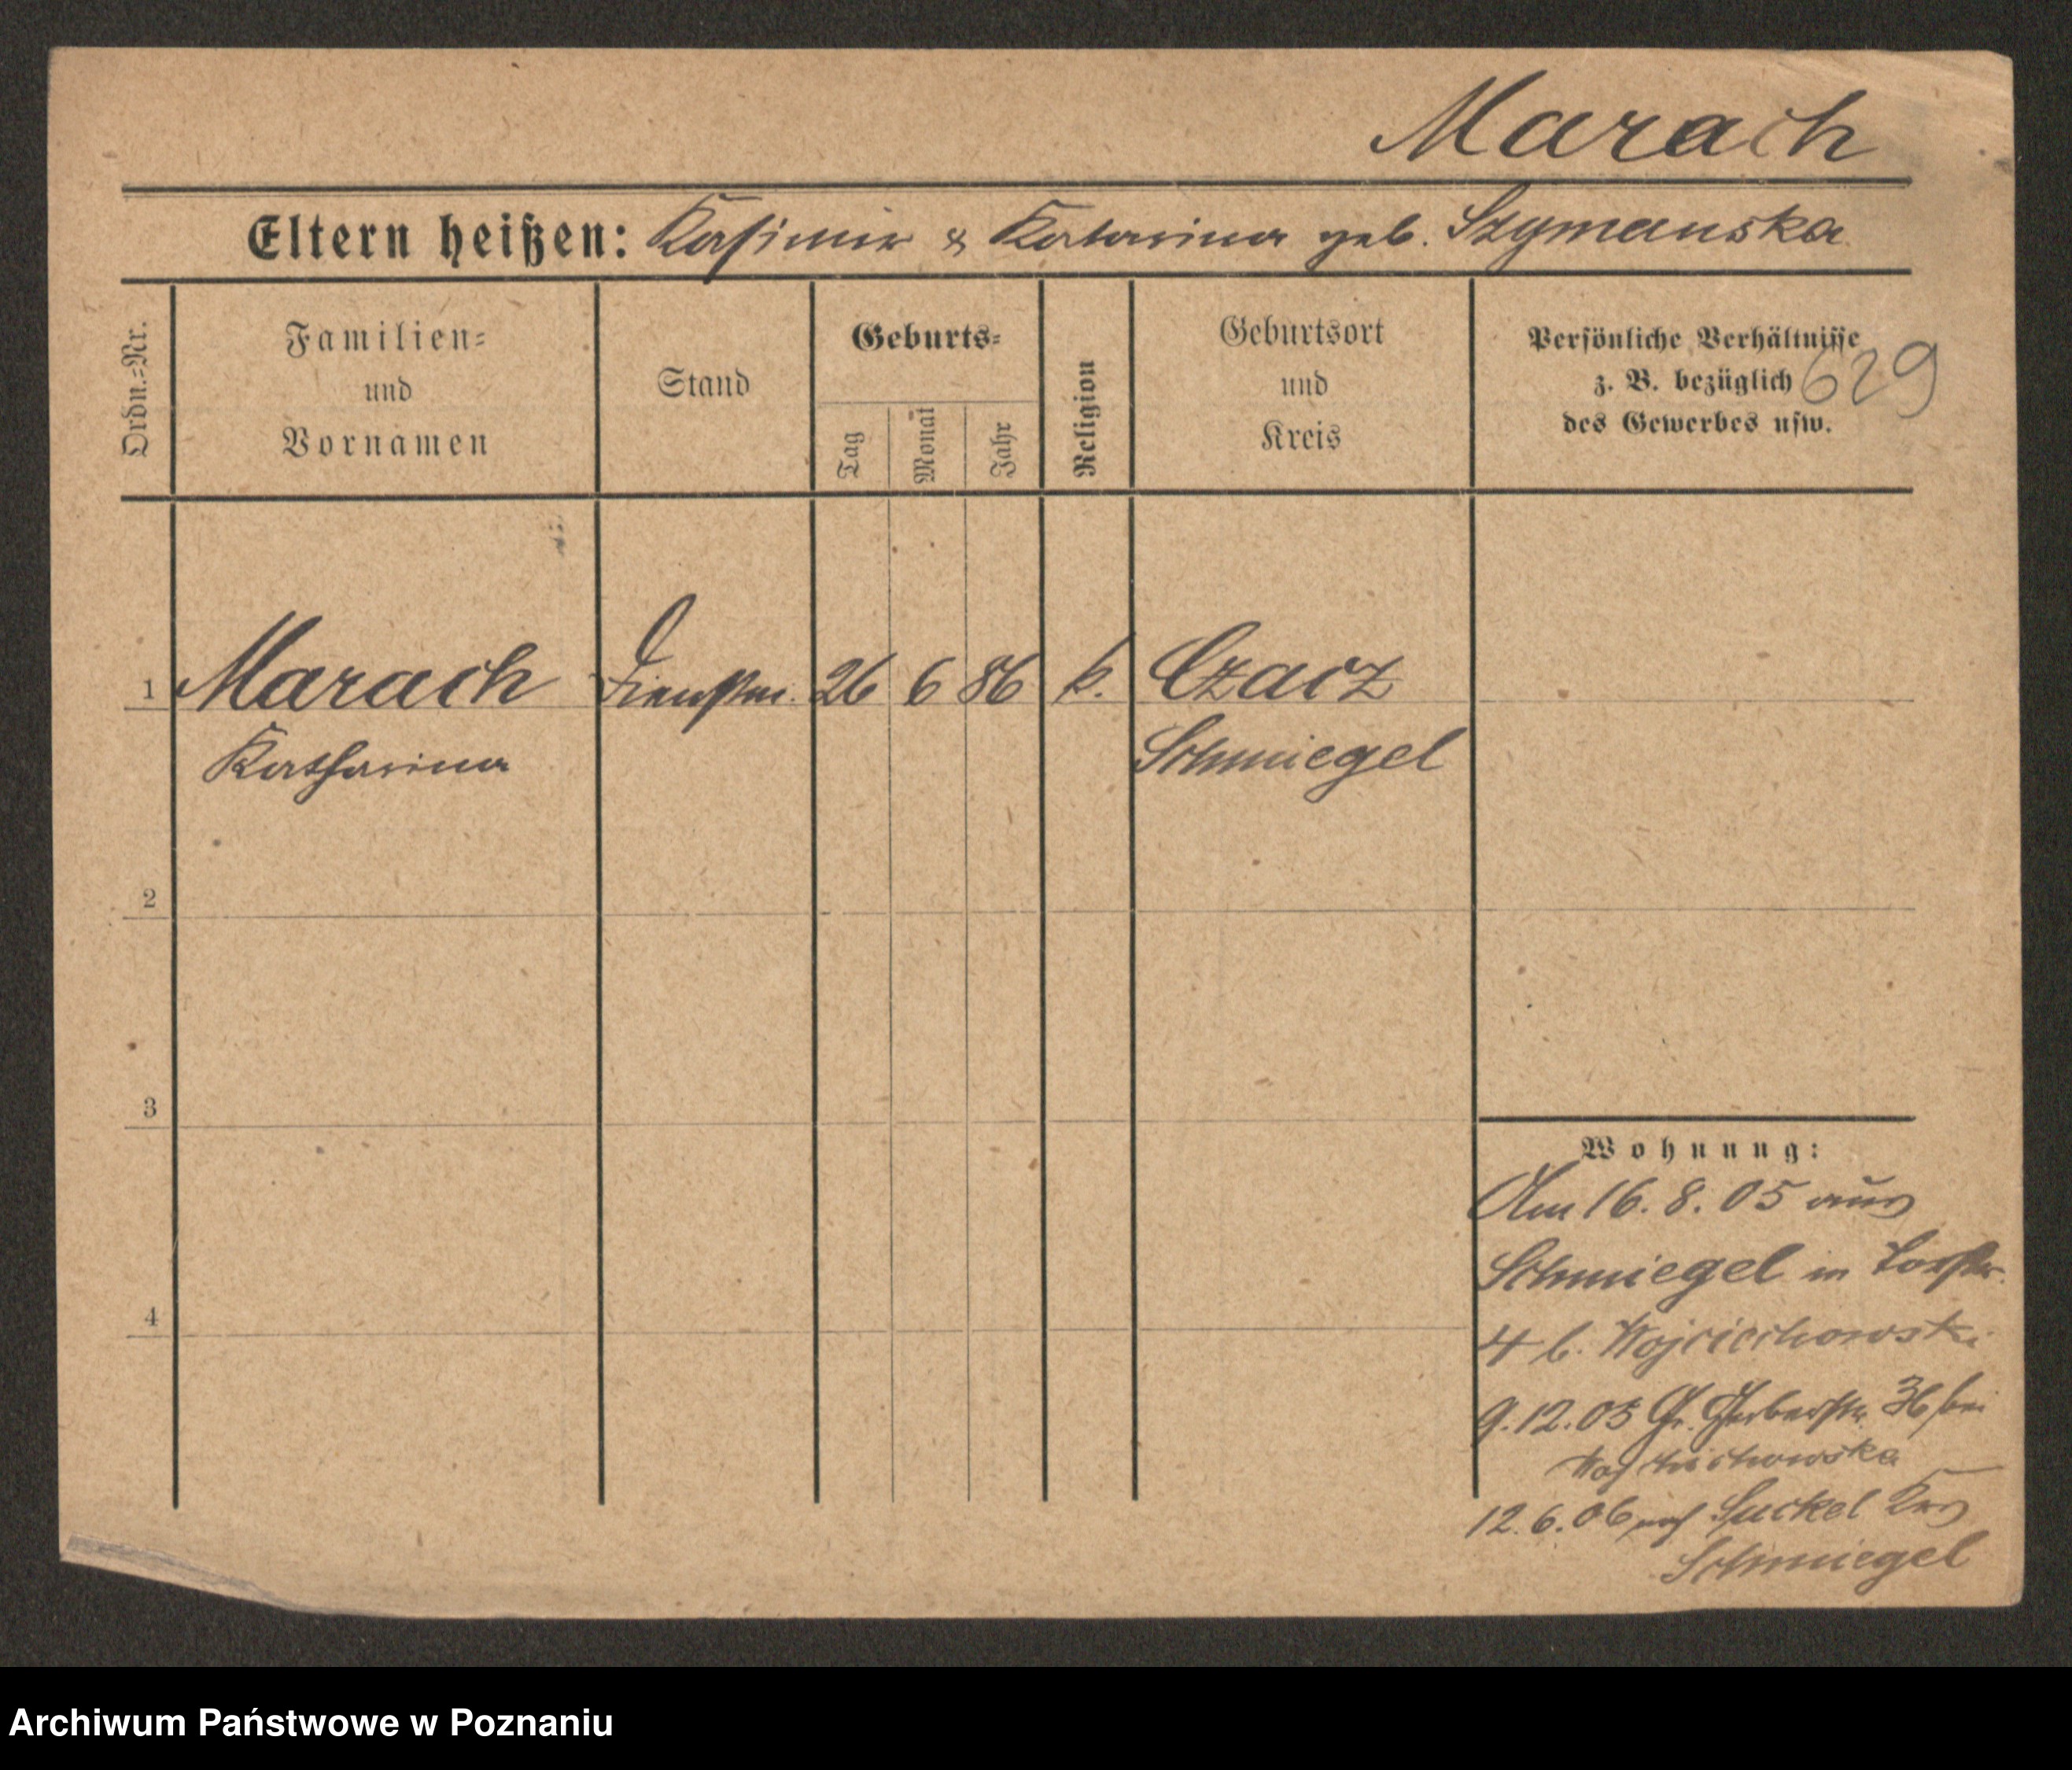 Marach
Eltern heißen: Kasimir & Katarina geb. Szymanska
Ordn.=Nr.
Familien=
und
Vornamen
Stand
Geburts=
Tag
Monat
Jahr
Religion
Geburtsort
und
Kreis
Persönliche Verhältnisse
z. B. bezüglich
des Gewerbes usw.
629
1 Marach Dienstm. 26 6 86 k. Czacz
Katharina Schmiegel
2
3
4
Wohnung:
Am 16. 8. 05 aus
Schmiegel in
4 b. Wojciechowski
9. 12. 05 Gr. Gerberstr. 36 bei
Wojciechowska
12. 6. 06 nach Suckel Krs
Schmiegel
Archiwum Państwowe w Poznaniu